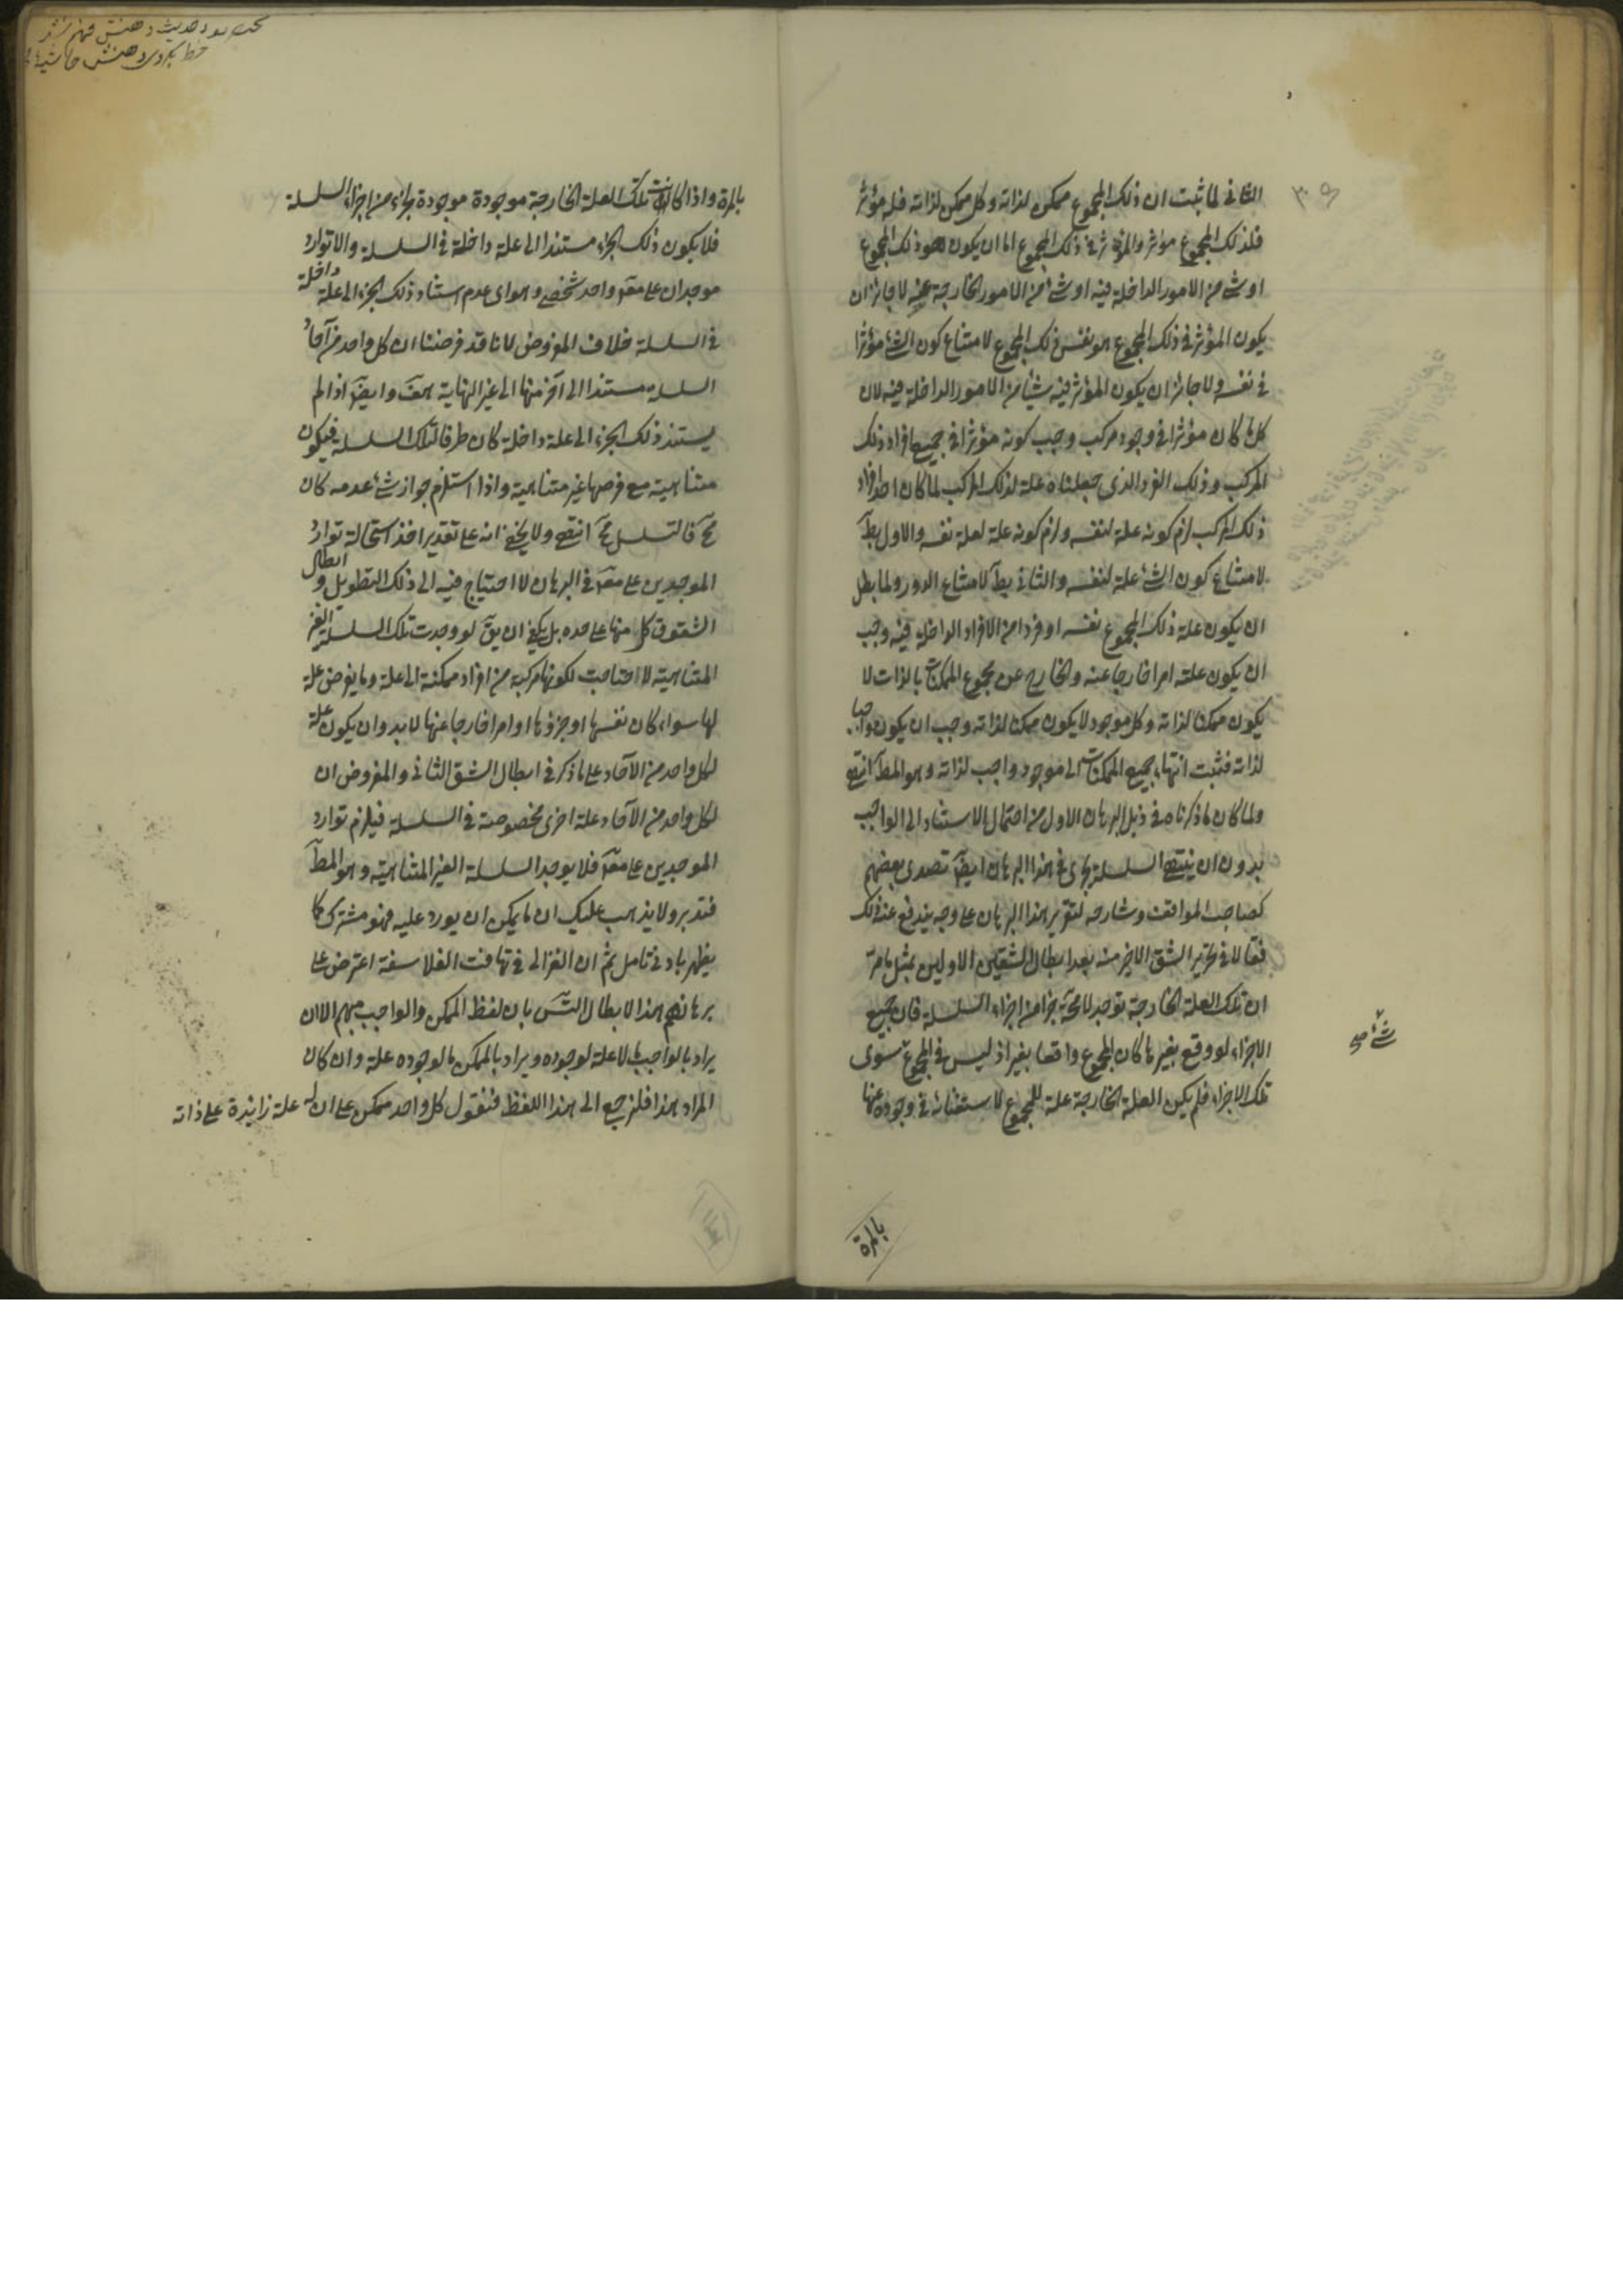 الثانى لما ثبت ان ذلك المجموع ممكن لذاته وكل ممكن لذاته فله مؤثر
فلذلك المجموع مؤثر والمؤثر فى ذلك المجموع اما ان يكون هو ذلك المجموع
او شئ من الامور الداخلة فيه او شئ من الامور الخارجة عنه لا جائز ان
يكون المؤثر فى ذلك المجموع هو نفس ذلك المجموع لامتناع كون الشئ مؤثرا
فى نفسه ولا جائز ان يكون المؤثر فيه شيئا من الامور الداخلة فيه لان
كل ما كان مؤثرا فى وجود مركب وجب كونه مؤثرا فى جميع افراد ذلك
المركب وذلك الفرد الذى جعلناه علة لذلك المركب لما كان احد افراد
ذلك المركب لزم كونه علة لنفسه ولزم كونه علة لعلة نفسه والاول بط
لامتناع كون الشئ علة لنفسه والثانى بط لامتناع الدور ولما بطل
ان يكون علة ذلك المجموع نفسه او فردا من الافراد الداخلة فيه وجب
ان يكون علته امرا خارجا عنه والخارج عن مجموع الممكنات بالذات لا
يكون ممكنا لذاته وكل موجود لا يكون ممكنا لذاته وجب ان يكون واجبا
لذاته فثبت انتهاء جميع الممكنات الى موجود واجب لذاته وهو المط انتهى
ولما كان ما ذكرناه فى ذيل البرهان الاول من احتمال الاستناد الى الواجب
بدون ان ينتهى السلسلة يجرى فى هذا البرهان ايضا تصدى بعضهم
كصاحب المواقف وشارحه لتقرير هذا البرهان على وجه يندفع عنه ذلك
فقالا فى تحرير الشق الاخير منه بعد ابطال الشقين الاولين بمثل ما مر
ان تلك العلة الخارجة توجد لا محة جزءا من اجزاء السلسلة فان جميع
الاجزاء لو وقع بغيرها كان المجموع واقعا بغيره اذ ليس فى المجموع شئ سوى
تلك الاجزاء فلم يكن العلة الخارجة علة للمجموع لاستغنائه فى وجوده عنها
شئ صح
بالمرة
بالمرة واذا كانت تلك العلة الخارجة موجودة موجودة بجزء من اجزاء السلسلة
فلا يكون ذلك الجزء مستندا الى علة داخلة فى السلسلة والا توارد
موجدان على معلول واحد شخصى وهو اى عدم استناد ذلك الجزء الى علة داخلة
فى السلسلة خلاف المفروض لانا قد فرضنا ان كل واحد من آحاد
السلسلة مستندا الى آخر منها الى غير النهاية هف وايضا اذا لم
يستند ذلك الجزء الى علة داخلة كان طرفا لتلك السلسلة فيكون
متناهية مع فرضها غير متناهية واذا استلزم جواز شئ عدمه كان
مح فالتسلسل مح انتهى ولا يخفى انه على تقدير اخذ استحالة توارد
الموجدين على معلول فى البرهان لا احتياج فيه الى ذلك التطويل وابطال
الشقوق كل منها على حده بل يكفى ان يق لو وجدت تلك السلسلة الغير
المتناهية لاحتاجت لكونها مركبة من افراد ممكنة الى علة وما يفرض علة
لها سواء كان نفسها او جزؤها او امرا خارجا عنها لا بد وان يكون علة
لكل واحد من الآحاد على ما ذكر فى ابطال الشق الثانى والمفروض ان
لكل واحد من الآحاد علة اخرى مخصوصة فى السلسلة فيلزم توارد
الموجدين على معلول فلا يوجد السلسلة الغير المتناهية وهو المط
فتدبر ولا يذهب عليك ان ما يمكن ان يورد عليه فهو مشترك كما
يظهر بادنى تامل ثم ان الغزالى فى تهافت الفلاسفة اعترض على
برهانهم هذا لابطال التس بان لفظ الممكن والواجب مبهم الا ان
يراد بالواجب ما لا علة لوجوده ويراد بالممكن ما لوجوده علة وان كان
المراد هذا فلنرجع الى هذا اللفظ فنقول كل واحد ممكن على ان له علة زايدة على ذاته